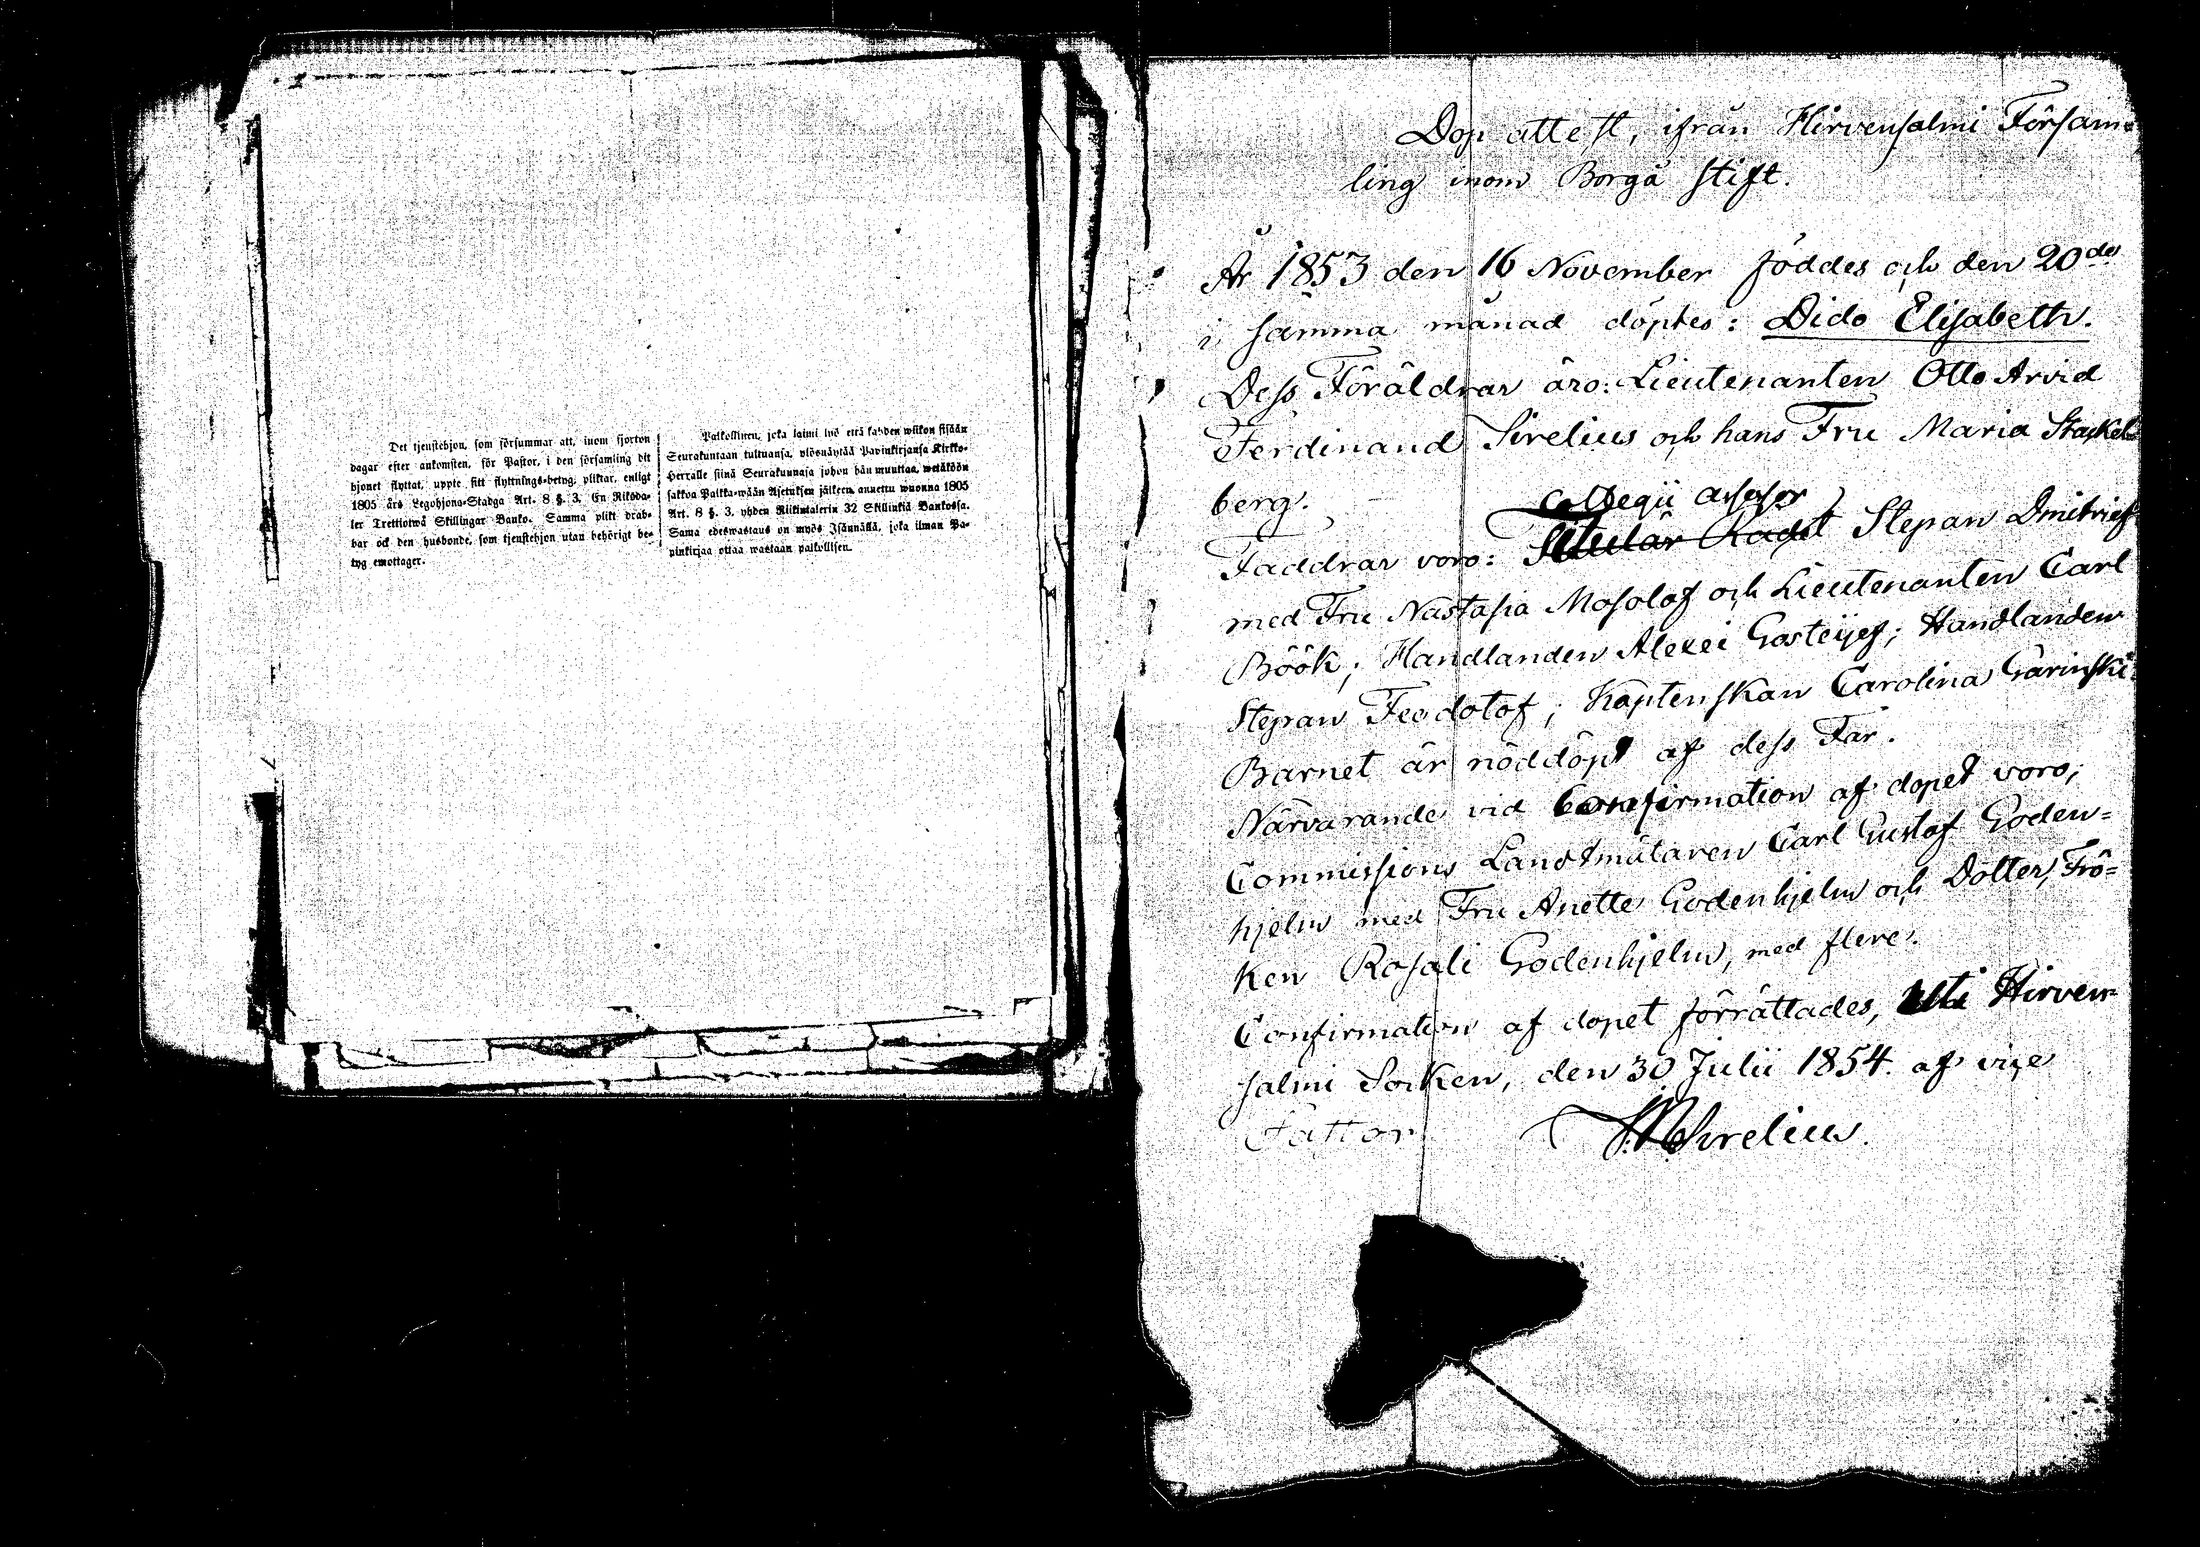 Det tjenstehjon, som försummar att, inom fjorton
dagar efter ankomsten, för Pastor, i den församling dit
hjonet flyttat, uppte sitt flyttnings-betyg, pliktar, enligt
1805 års Legohjons-Stadga Art. 8 §. 3, En Riksda-
ler Trettiotwå Skillingar Banko. Samma plikt drab-
bar ock den husbonde, som tjenstehjon utan behörigt be-
tyg emottager.
Palkollinen, joka laimi lyö että kahden wiikon sisään
Seurakuntaan tultuansa, ylösnäytää Papinkirjansa Kirkko-
Herralle siinä Seurakunnasa johon hän muuttaa, wetäköön
sakkoa Palkka-wään Asetuksen jälkeen annettu wuonna 1805
Art. 8 §. 3. yhden Riikintalerin 32 Skillinkiä Bankossa.
Sama edeswastaus on myös Isännällä, joka ilman Pa-
pinkirjaa ottaa wastaan palkollisen.
Dop attest, ifrån Hirvensalmi Försam=
ling inom Borgå stift.
År 1853 den 16 November föddes och den 20de
i samma månad döptes: Dido Elisabeth.
Dess Föräldrar äro: Lieutenanten Otto Arvid
Ferdinand Sirelius och hans Fru Maria Stackel
berg.
Collegii assessor
Faddrar voro: Titulär Rådet Stepan Dmitrief
med Fru Nastasia Mosolof och Lieutenanten Carl
Böök; Handlanden Alexei Gosteijef; Handlanden
Stepan Feodotof; Kaptenskan Carolina Garinski.
Barnet är nöddöpt af dess Far.
Närvarande vid Confirmation af dopet voro;
Commissions Landtmätaren Carl Gustaf Goden=
hjelm med Fru Anette Godenhjelm och Dotter, Frö=
ken Rosali Godenhjelm, med flere.
Confirmation af dopet förrättades, uti Hirven=
salmi Socken, den 30 Julii 1854. af vice
Pastor Sirelius.